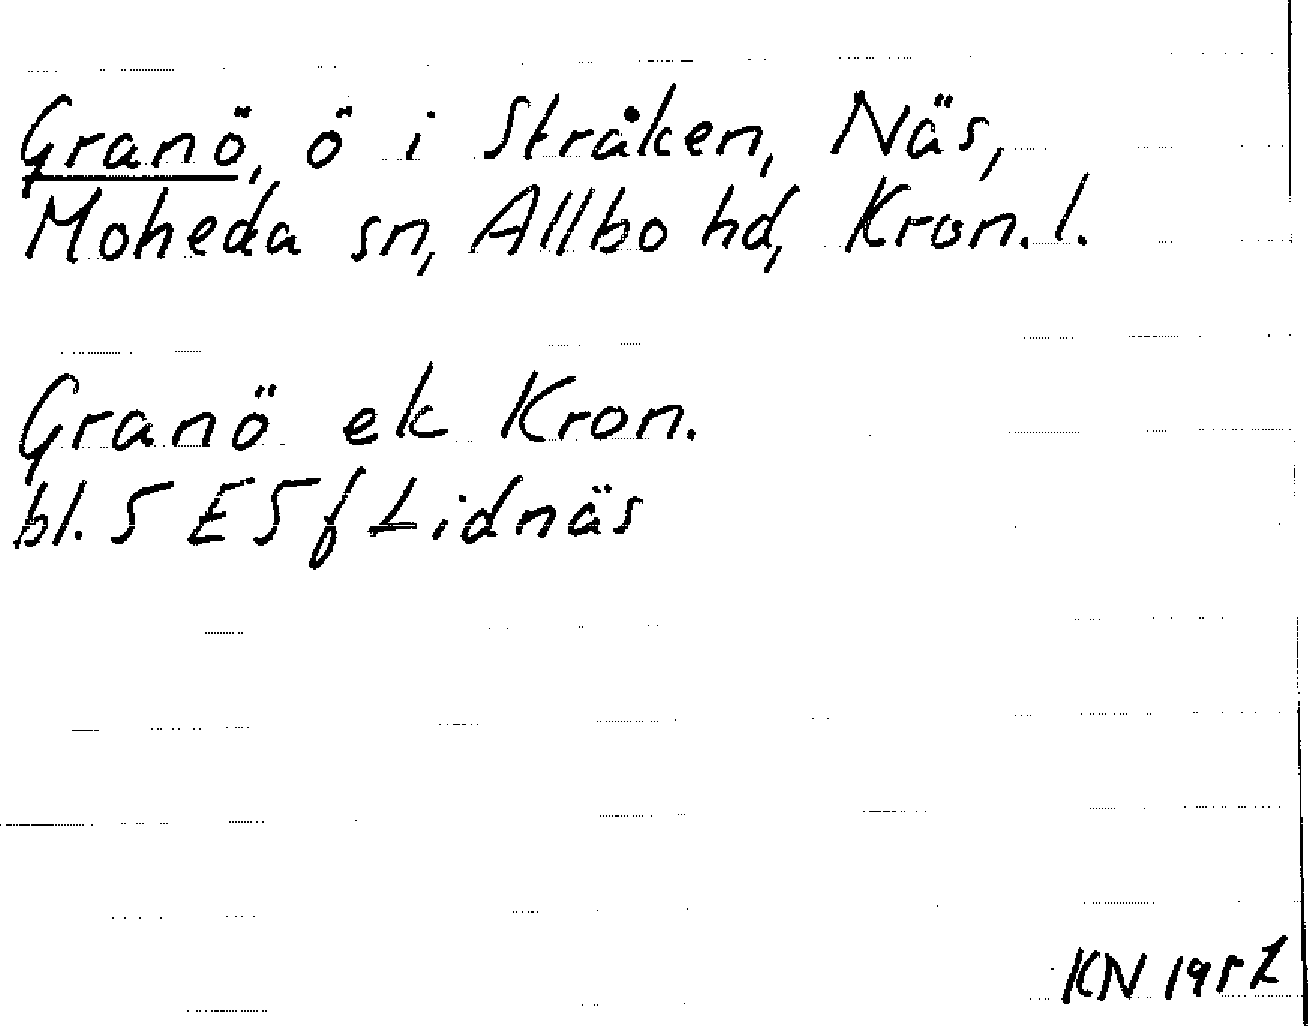 Granö, ö i Stråken, Näs,
Moheda sn, Allbo hd, Kron. l.
Granö ek Kron.
bl. 5 E 5 f Lidnäs
KN 1952